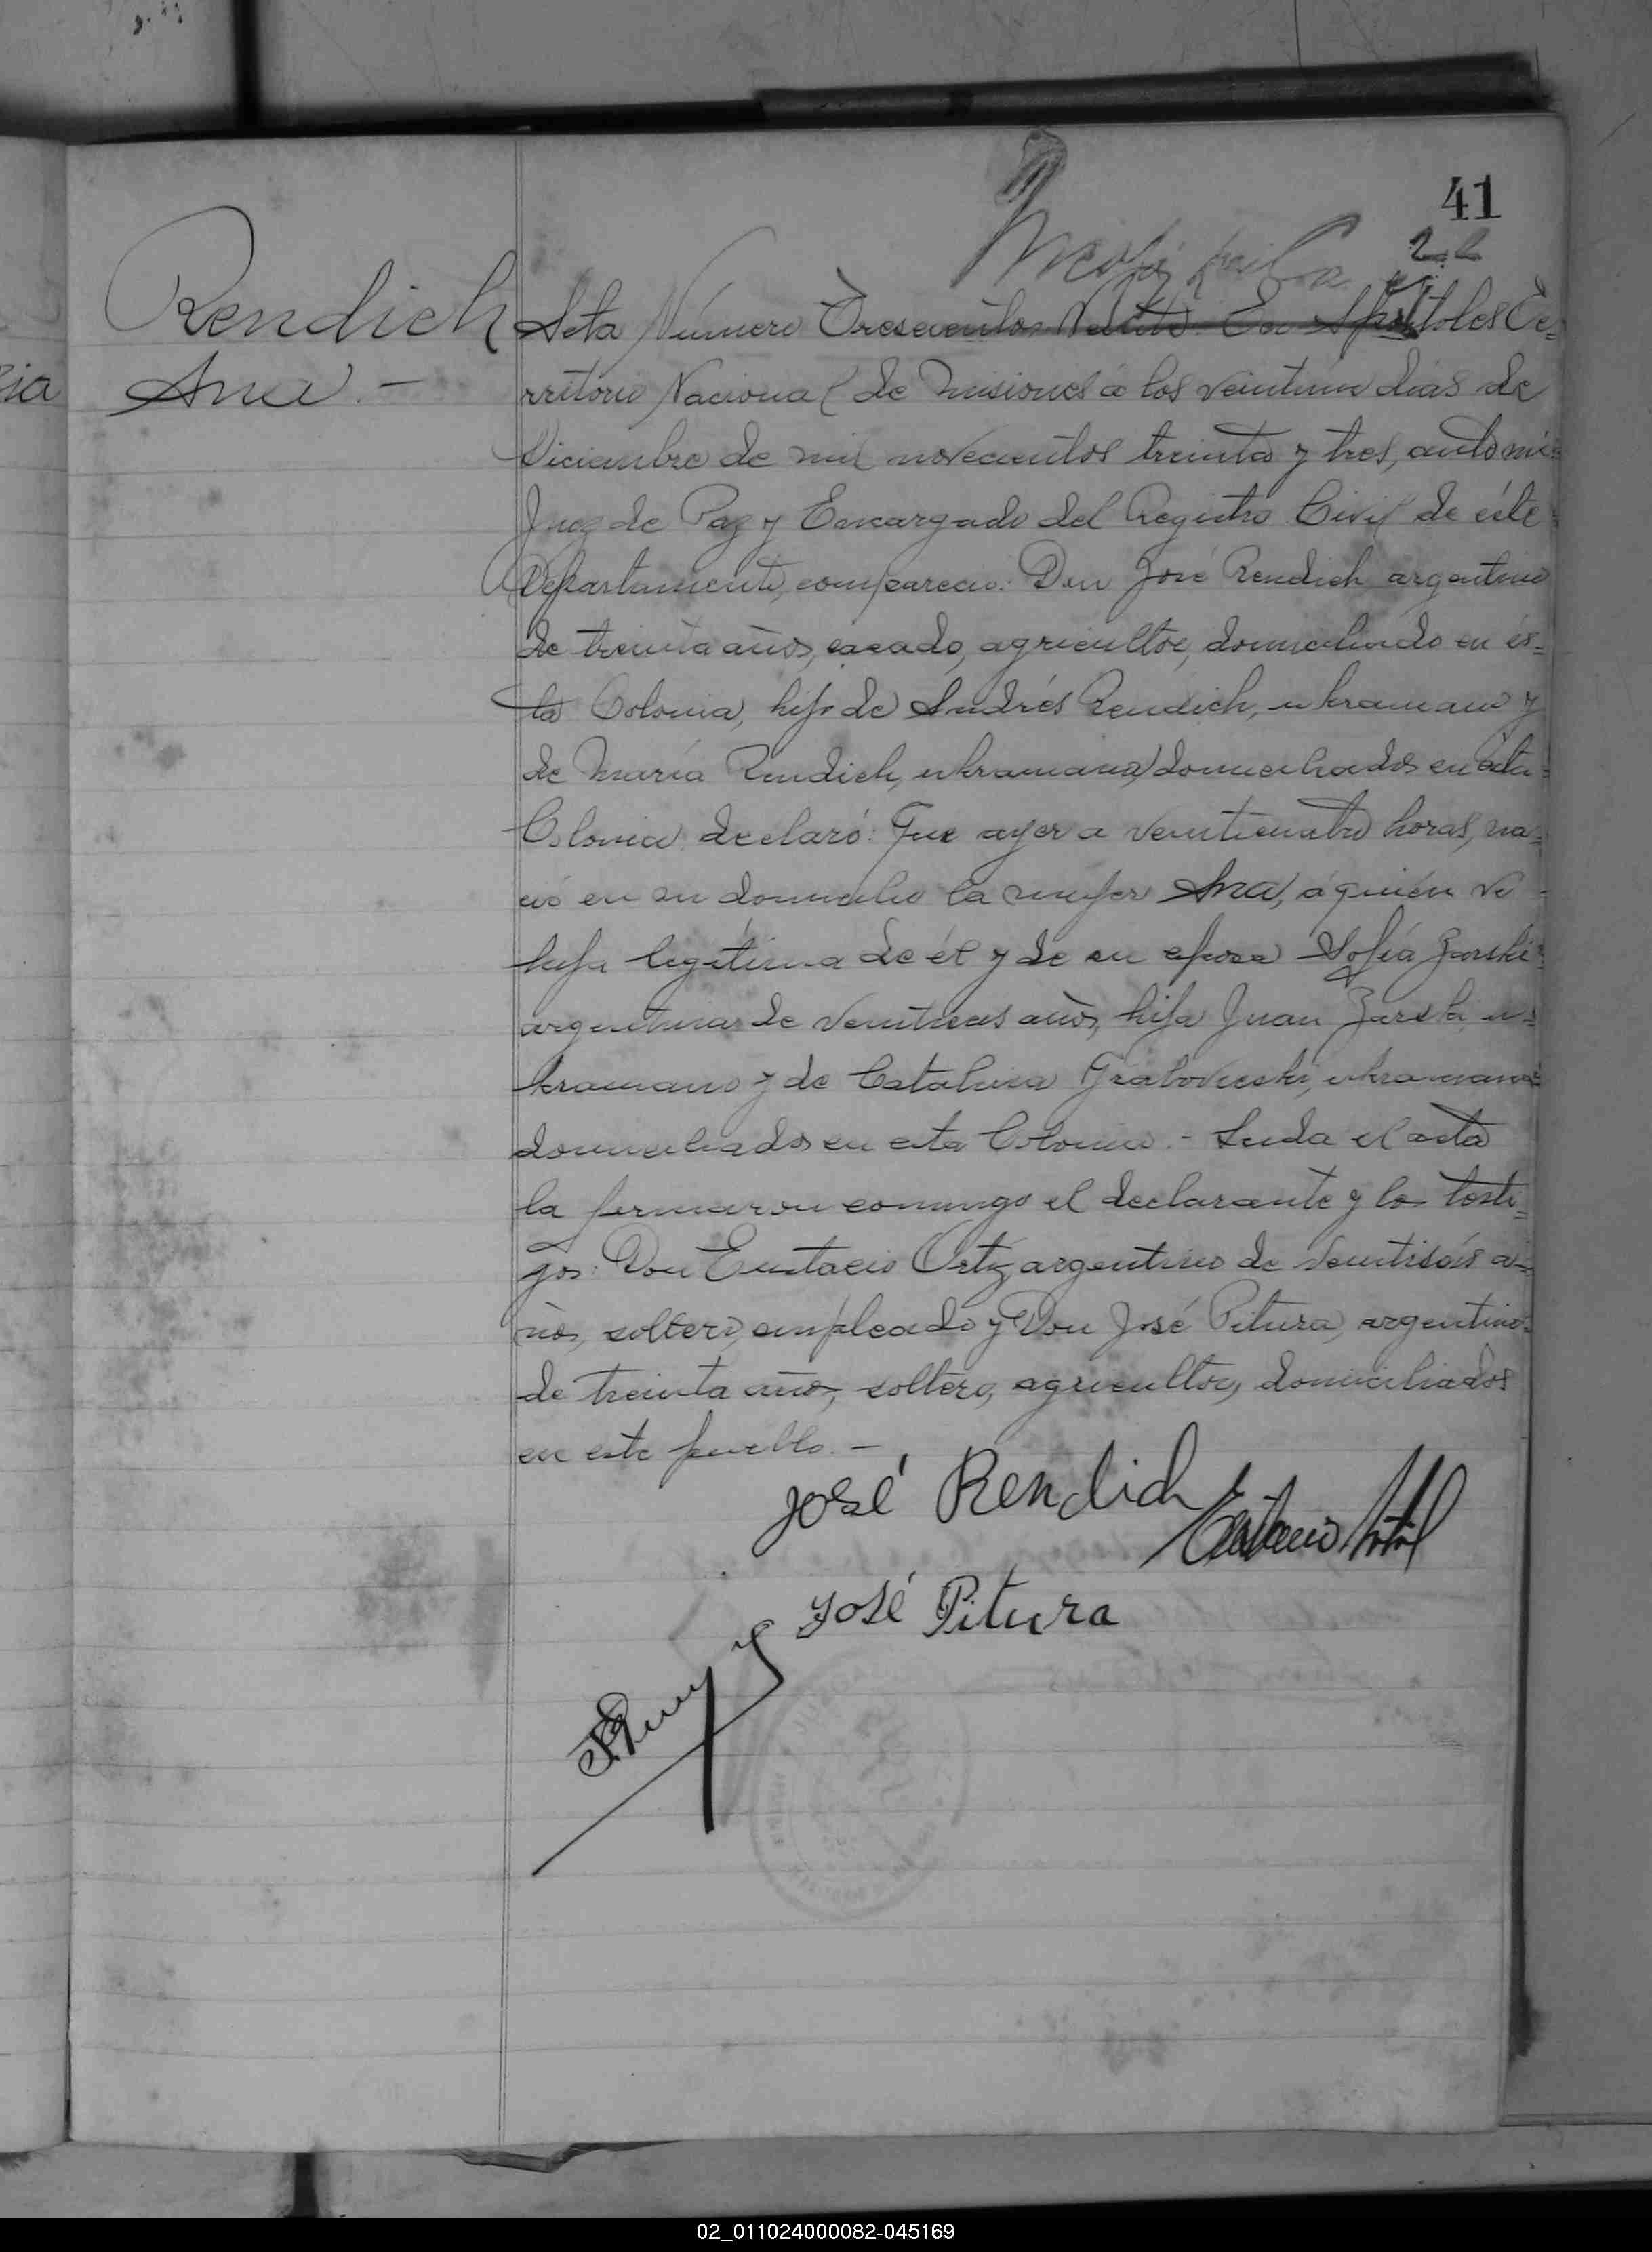 41
Rendich
Ana. -
Acta Número Trescientos En Apóstoles Te=
rritorio Nacional de Misiones á los veintiun dias de
Diciembre de mil novecientos treinta y tres, ante mi
Juez de Paz y Encargado del Registro Civil de éste
Departamento, compareció: Don José Rendich argentino
de treinta años, casado, agricultor, domiciliado en és=
ta Colonia, hijo de Andrés Rendich, ukraniano y
de María Rendich, ukraniana, domiciliados en ésta
Colonia, declaró: Que ayer a veinticuatro horas, na=
ció en su domicilio la mujer Ana, á quién ví
hija legítima de él y de su esposa Sofía Zarski
argentina de años, hija Juan Zarski, u=
kraniano y de Catalina ukraniana
domiciliados en esta Colonia. - Leida el acta
la firmaron conmigo el declarante y los testi=
gos: Don Eustacio Ortiz, argentino de veintiséis a=
ños, soltero, empleado y Don José Pitura, argentino
de treinta años, soltero, agricultor, domiciliados
en este pueblo. -
José Rendich
José Pitura
02_011024000082-045169